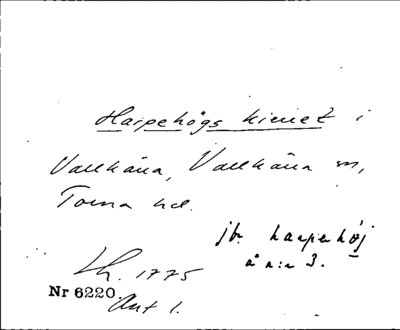 Harpehögs kieuet i
Vallkärra, Vallkärra sn,
Torna hd.
jfr harpehöj
å n:r 3.
Lh. 1775
Nr 6220
Akt 1.